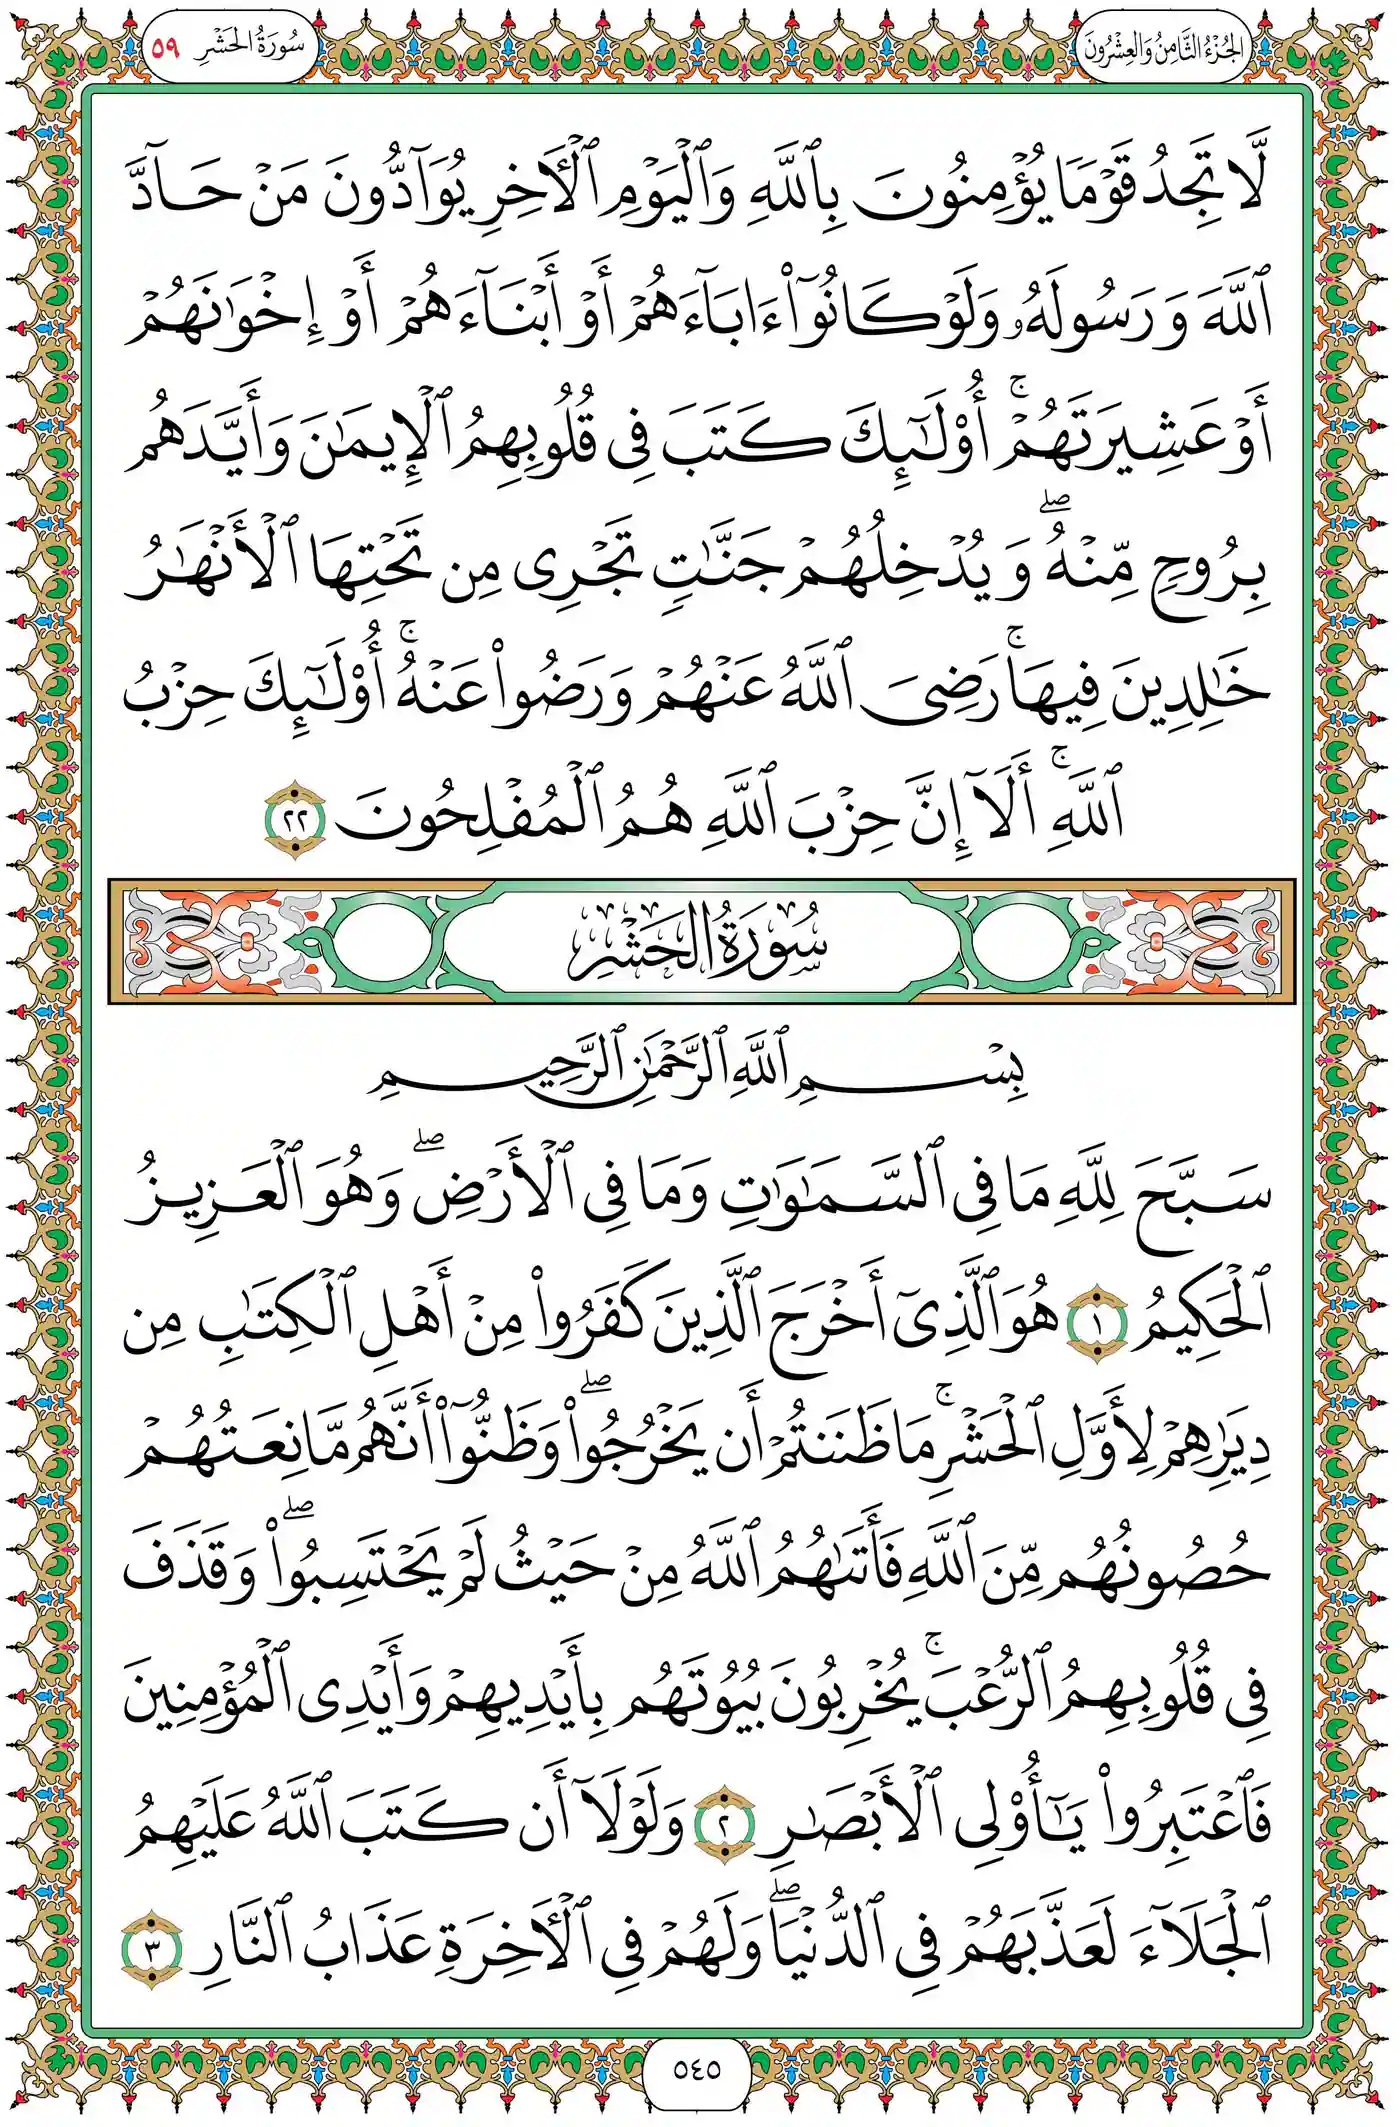 الجُزْءُ الثَّامِنُ وَالعِشْرُونَ
سُورَةُ الحَشْرِ ٥٩
لَّا تَجِدُ قَوْمًا يُؤْمِنُونَ بِٱللَّهِ وَٱلْيَوْمِ ٱلْأَخِرِ يُوَآدُّونَ مَنْ حَآدَّ
ٱللَّهَ وَرَسُولَهُۥ وَلَوْ كَانُوٓا۟ ءَابَآءَهُمْ أَوْ أَبْنَآءَهُمْ أَوْ إِخْوَٰنَهُمْ
أَوْ عَشِيرَتَهُمْ ۚ أُو۟لَٰٓئِكَ كَتَبَ فِى قُلُوبِهِمُ ٱلْإِيمَٰنَ وَأَيَّدَهُم
بِرُوحٍ مِّنْهُ ۖ وَيُدْخِلُهُمْ جَنَّٰتٍ تَجْرِى مِن تَحْتِهَا ٱلْأَنْهَٰرُ
خَٰلِدِينَ فِيهَا ۚ رَضِىَ ٱللَّهُ عَنْهُمْ وَرَضُوا۟ عَنْهُ ۚ أُو۟لَٰٓئِكَ حِزْبُ
ٱللَّهِ ۚ أَلَآ إِنَّ حِزْبَ ٱللَّهِ هُمُ ٱلْمُفْلِحُونَ ٢٢
سُورَةُ الحَشْرِ
بِسْمِ ٱللَّهِ ٱلرَّحْمَٰنِ ٱلرَّحِيمِ
سَبَّحَ لِلَّهِ مَا فِى ٱلسَّمَٰوَٰتِ وَمَا فِى ٱلْأَرْضِ ۖ وَهُوَ ٱلْعَزِيزُ
ٱلْحَكِيمُ ١ هُوَ ٱلَّذِىٓ أَخْرَجَ ٱلَّذِينَ كَفَرُوا۟ مِنْ أَهْلِ ٱلْكِتَٰبِ مِن
دِيَٰرِهِمْ لِأَوَّلِ ٱلْحَشْرِ ۚ مَا ظَنَنتُمْ أَن يَخْرُجُوا۟ ۖ وَظَنُّوٓا۟ أَنَّهُم مَّانِعَتُهُمْ
حُصُونُهُم مِّنَ ٱللَّهِ فَأَتَىٰهُمُ ٱللَّهُ مِنْ حَيْثُ لَمْ يَحْتَسِبُوا۟ ۖ وَقَذَفَ
فِى قُلُوبِهِمُ ٱلرُّعْبَ ۚ يُخْرِبُونَ بُيُوتَهُم بِأَيْدِيهِمْ وَأَيْدِى ٱلْمُؤْمِنِينَ
فَٱعْتَبِرُوا۟ يَٰٓأُو۟لِى ٱلْأَبْصَٰرِ ٢ وَلَوْلَآ أَن كَتَبَ ٱللَّهُ عَلَيْهِمُ
ٱلْجَلَآءَ لَعَذَّبَهُمْ فِى ٱلدُّنْيَا ۖ وَلَهُمْ فِى ٱلْأَخِرَةِ عَذَابُ ٱلنَّارِ ٣
٥٤٥